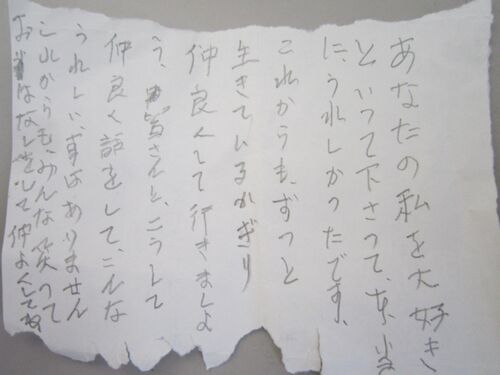 あなたの私を大好き
といって下さって、本当
に、うれしかったです、
これからも、ずっと
生きているかぎり
仲良くして行きましよ
う、皆さんと、こうして
仲良く話をして、こんな
うれしい、事はありません
これからも、みんな笑って
おはなしをして仲よくしてね